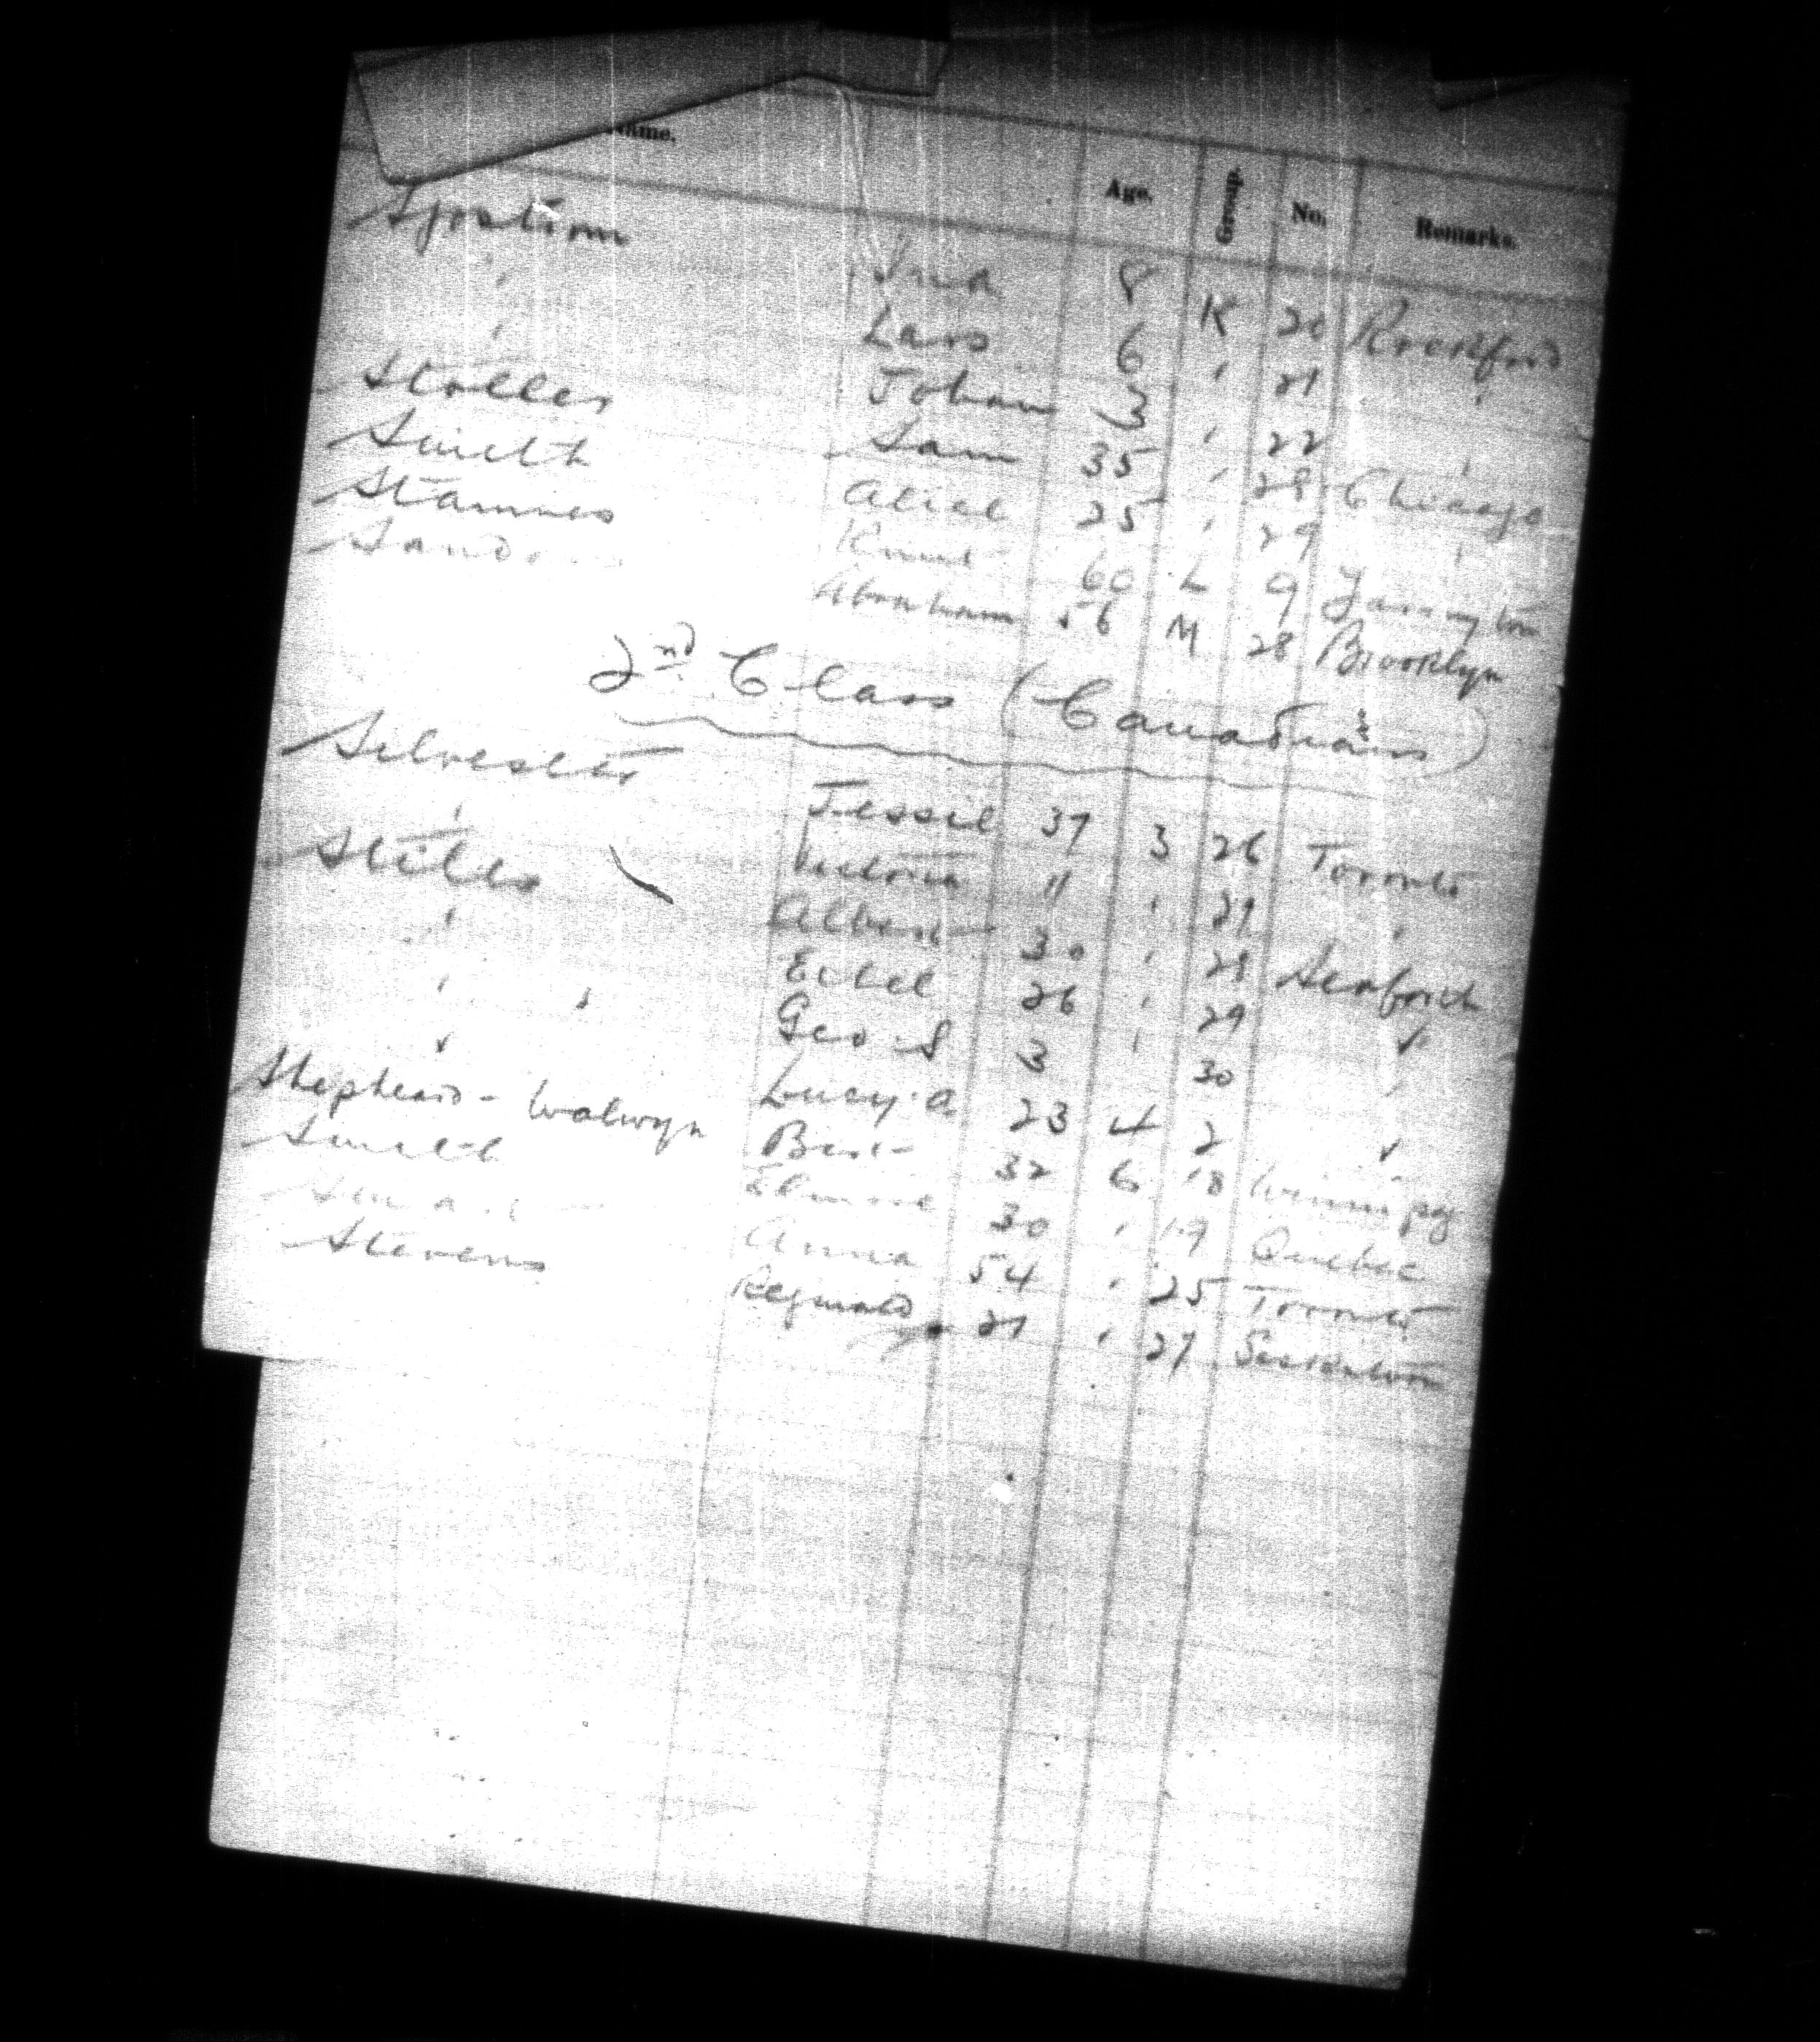 Name. Age. Group. No. Remarks.
Sjostrom Ina 8 K 20 Rockford
" Lars 6 " 21 "
" Johan 3 " 22 "
Stolles Sam 35 " 28 Chicago
Smith Alice 25 " 29 "
Stamnes Knut 60 L 9
Abraham 56 M 28 Brooklyn
2nd Class (Canadians)
Silvester Jessie 37 3 26 Toronto
" Victoria 11 " 27 "
Stiles Albert 30 " 28 Seaforth
" Ethel 26 " 29 "
" " Geo. S 3 " 30 "
" Lucy. A 23 4 2 "
Shepheard - Walwyn Bert 32 6 18 Winnipeg
Smith 30 " 19 Quebec
Anna 54 " 25 Toronto
Stevens Reginald 27 " 27 Saskatoon